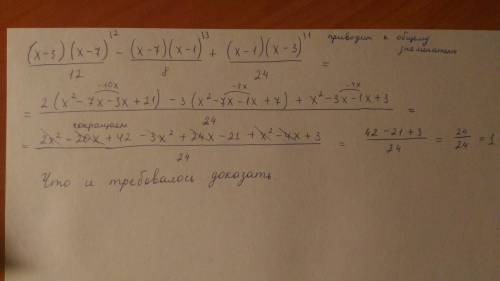 (x-3)(x-7)^{\2}/12 - (x-7)(x-1)^{\3}/8 + (x-1)(x-3)^{\1}/24 = приводим к общему знаменателю
= (2(x²-7x-3x+21) - 3(x²-7x-1x+7) + x²-3x-1x+3)/24 =
-10x -8x -4x
сокращаем
= (2x²-20x+42 -3x²+24x-21+x²-4x+3)/24 = (42-21+3)/24 = 24/24 = 1
Что и требовалось доказать.